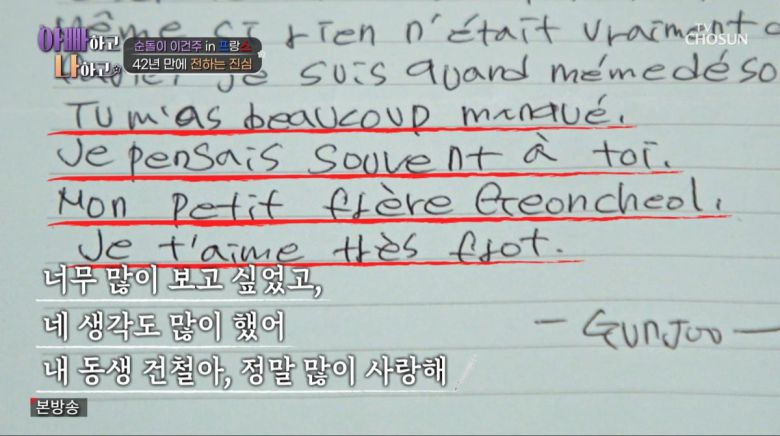 아빠하고
나하고
순돌이 이건주 in 프랑스
42년 만에 전하는 진심
TV CHOSUN
Même si rien n'était vraiment
je suis quand même déso
Tu m'as beaucoup manqué.
Je pensais souvent à toi.
Mon petit frère Geoncheol.
Je t'aime très frot.
너무 많이 보고 싶었고,
네 생각도 많이 했어
내 동생 건철아, 정말 많이 사랑해
- GUNJOO -
본방송